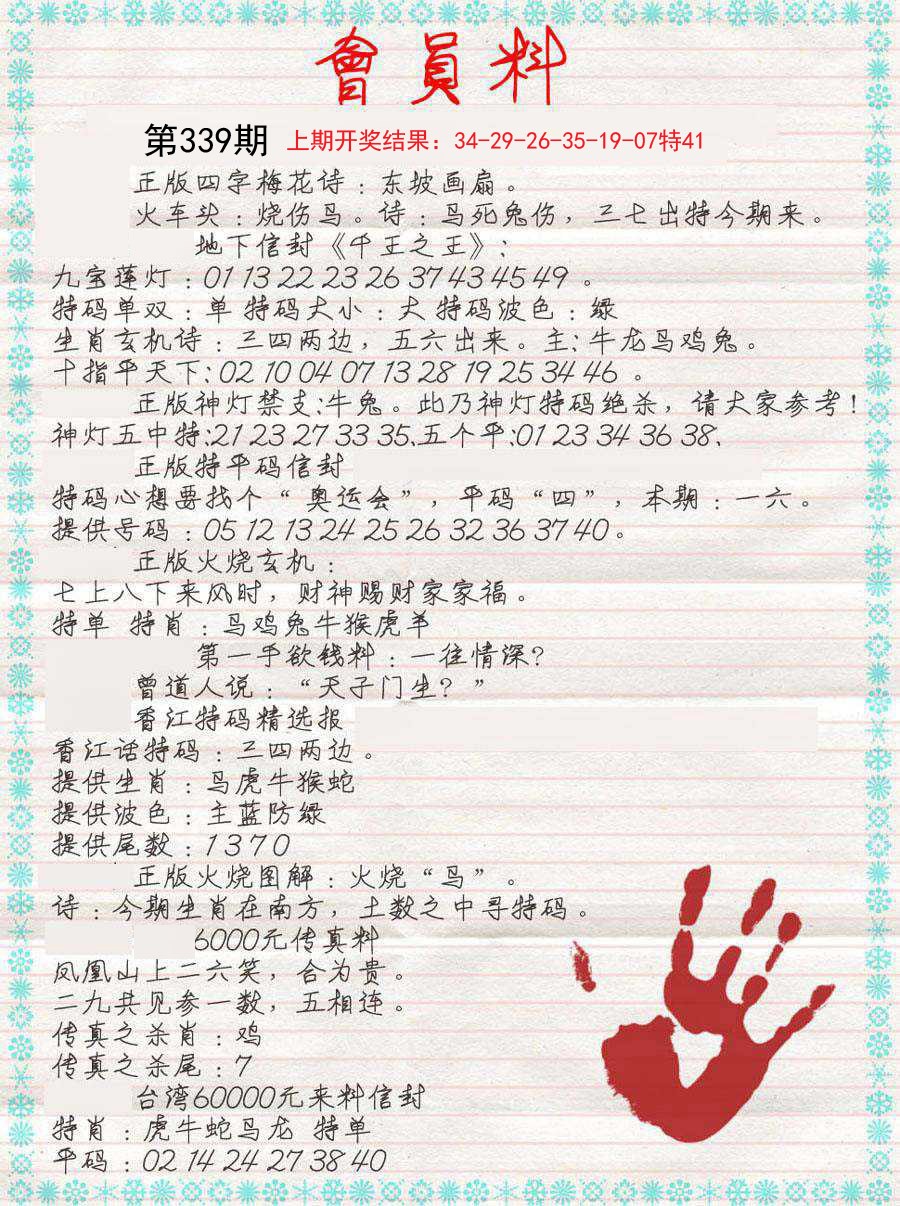 會員料
第339期 上期开奖结果：34-29-26-35-19-07特41
正版四字梅花诗：东坡画扇。
火车头：烧伤鸟。诗：鸟死兔伤，三七出特今期来。
地下信封《千王之王》：
九宝莲灯：01 13 22 23 26 37 43 45 49 。
特码单双：单 特码大小：大 特码波色：绿
生肖玄机诗：三四两边，五六出来。主：牛龙马鸡兔。
十指平天下：02 10 04 07 13 28 19 25 34 46 。
正版神灯禁支：牛兔。此乃神灯特码绝杀，请大家参考！
神灯五中特：21 23 27 33 35、五个平：01 23 34 36 38、
正版特平码信封
特码心想要找个“奥运会”，平码“四”，本期：一六。
提供号码：05 12 13 24 25 26 32 36 37 40。
正版火烧玄机：
七上八下来风时，财神赐财家家福。
特单 特肖：马鸡兔牛猴虎羊
第一手欲钱料：一往情深？
曾道人说：“天子门生？”
香江特码精选报
香江话特码：三四两边。
提供生肖：马虎牛猴蛇
提供波色：主蓝防绿
提供尾数：1 3 7 0
正版火烧图解：火烧“鸟”。
诗：今期生肖在南方，土数之中寻特码。
6000元传真料
凤凰山上二六笑，合为贵。
二九共见参一数，五相连。
传真之杀肖：鸡
传真之杀尾：7
台湾60000元来料信封
特肖：虎牛蛇马龙 特单
平码：02 14 24 27 38 40